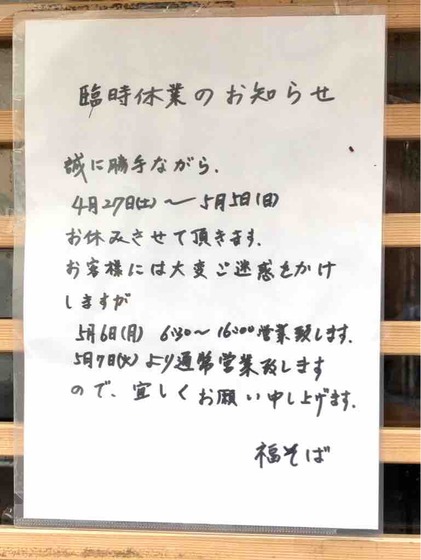 臨時休業のお知らせ
誠に勝手ながら、
4月27日(土)〜5月5日(日)
お休みさせて頂きます。
お客様には大変ご迷惑をかけ
しますが
5月6日(月) 6:30〜16:00営業致します。
5月7日(火)より通常営業致します
ので、宜しくお願い申し上げます。
福そば